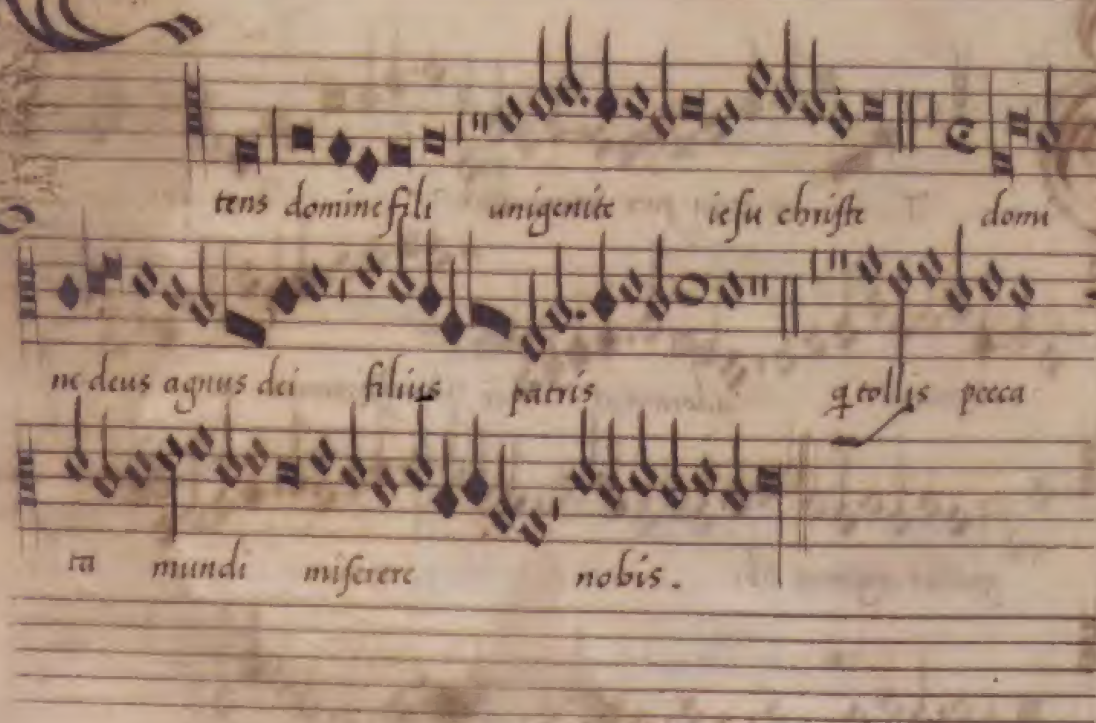 tens domine fili unigenite iesu christe domi
ne deus agnus dei filius patris q tollis pecca
ta mundi miserere nobis.